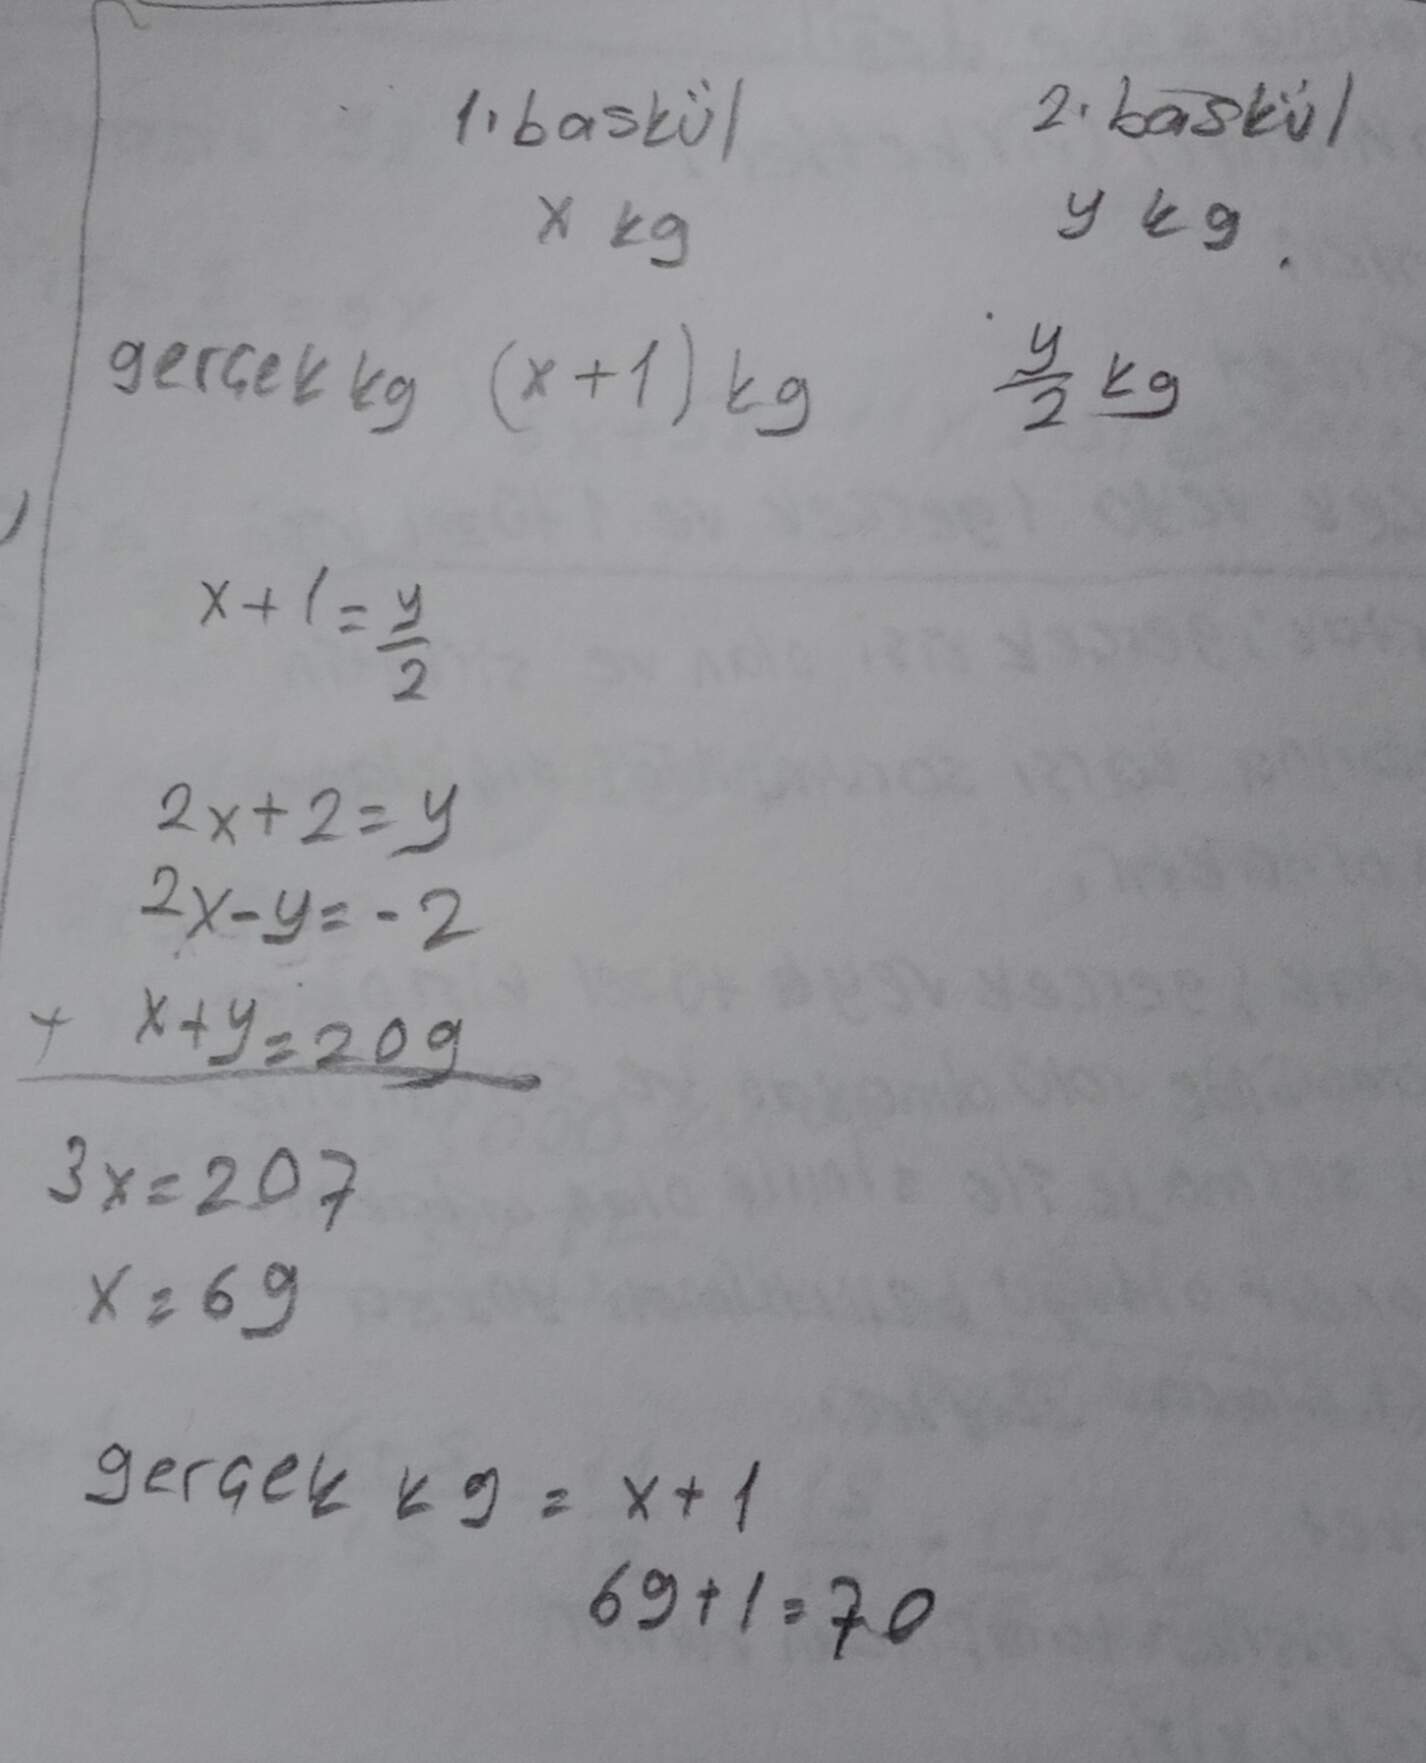 1. baskül 2. baskül
x kg y kg
gerçek kg (x+1) kg y/2 kg
x+1=y/2
2x+2=y
2x-y=-2
+ x+y=209
3x=207
x=69
gerçek kg = x+1
69+1=70